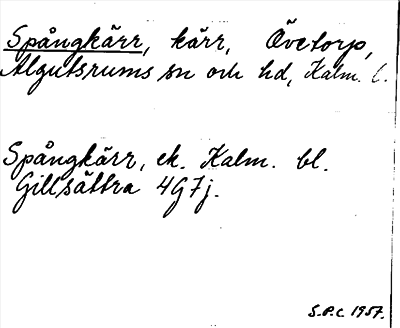 Spångkärr, kärr, Övetorp,
Algutsrums sn och hd, Kalm. l.
Spångkärr, ek. Kalm. bl.
Gillsättra 4G7j.
S.P.C. 1957.